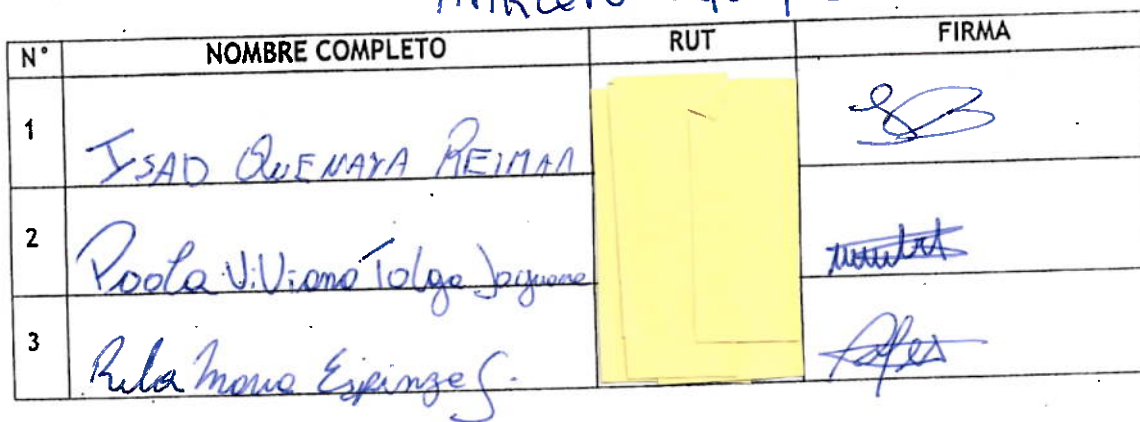 N° NOMBRE COMPLETO RUT FIRMA
1 ISAD QUENAYA REIMAN
2 Paola Viviana Tolga
3 Rila Maria Espinoza G.